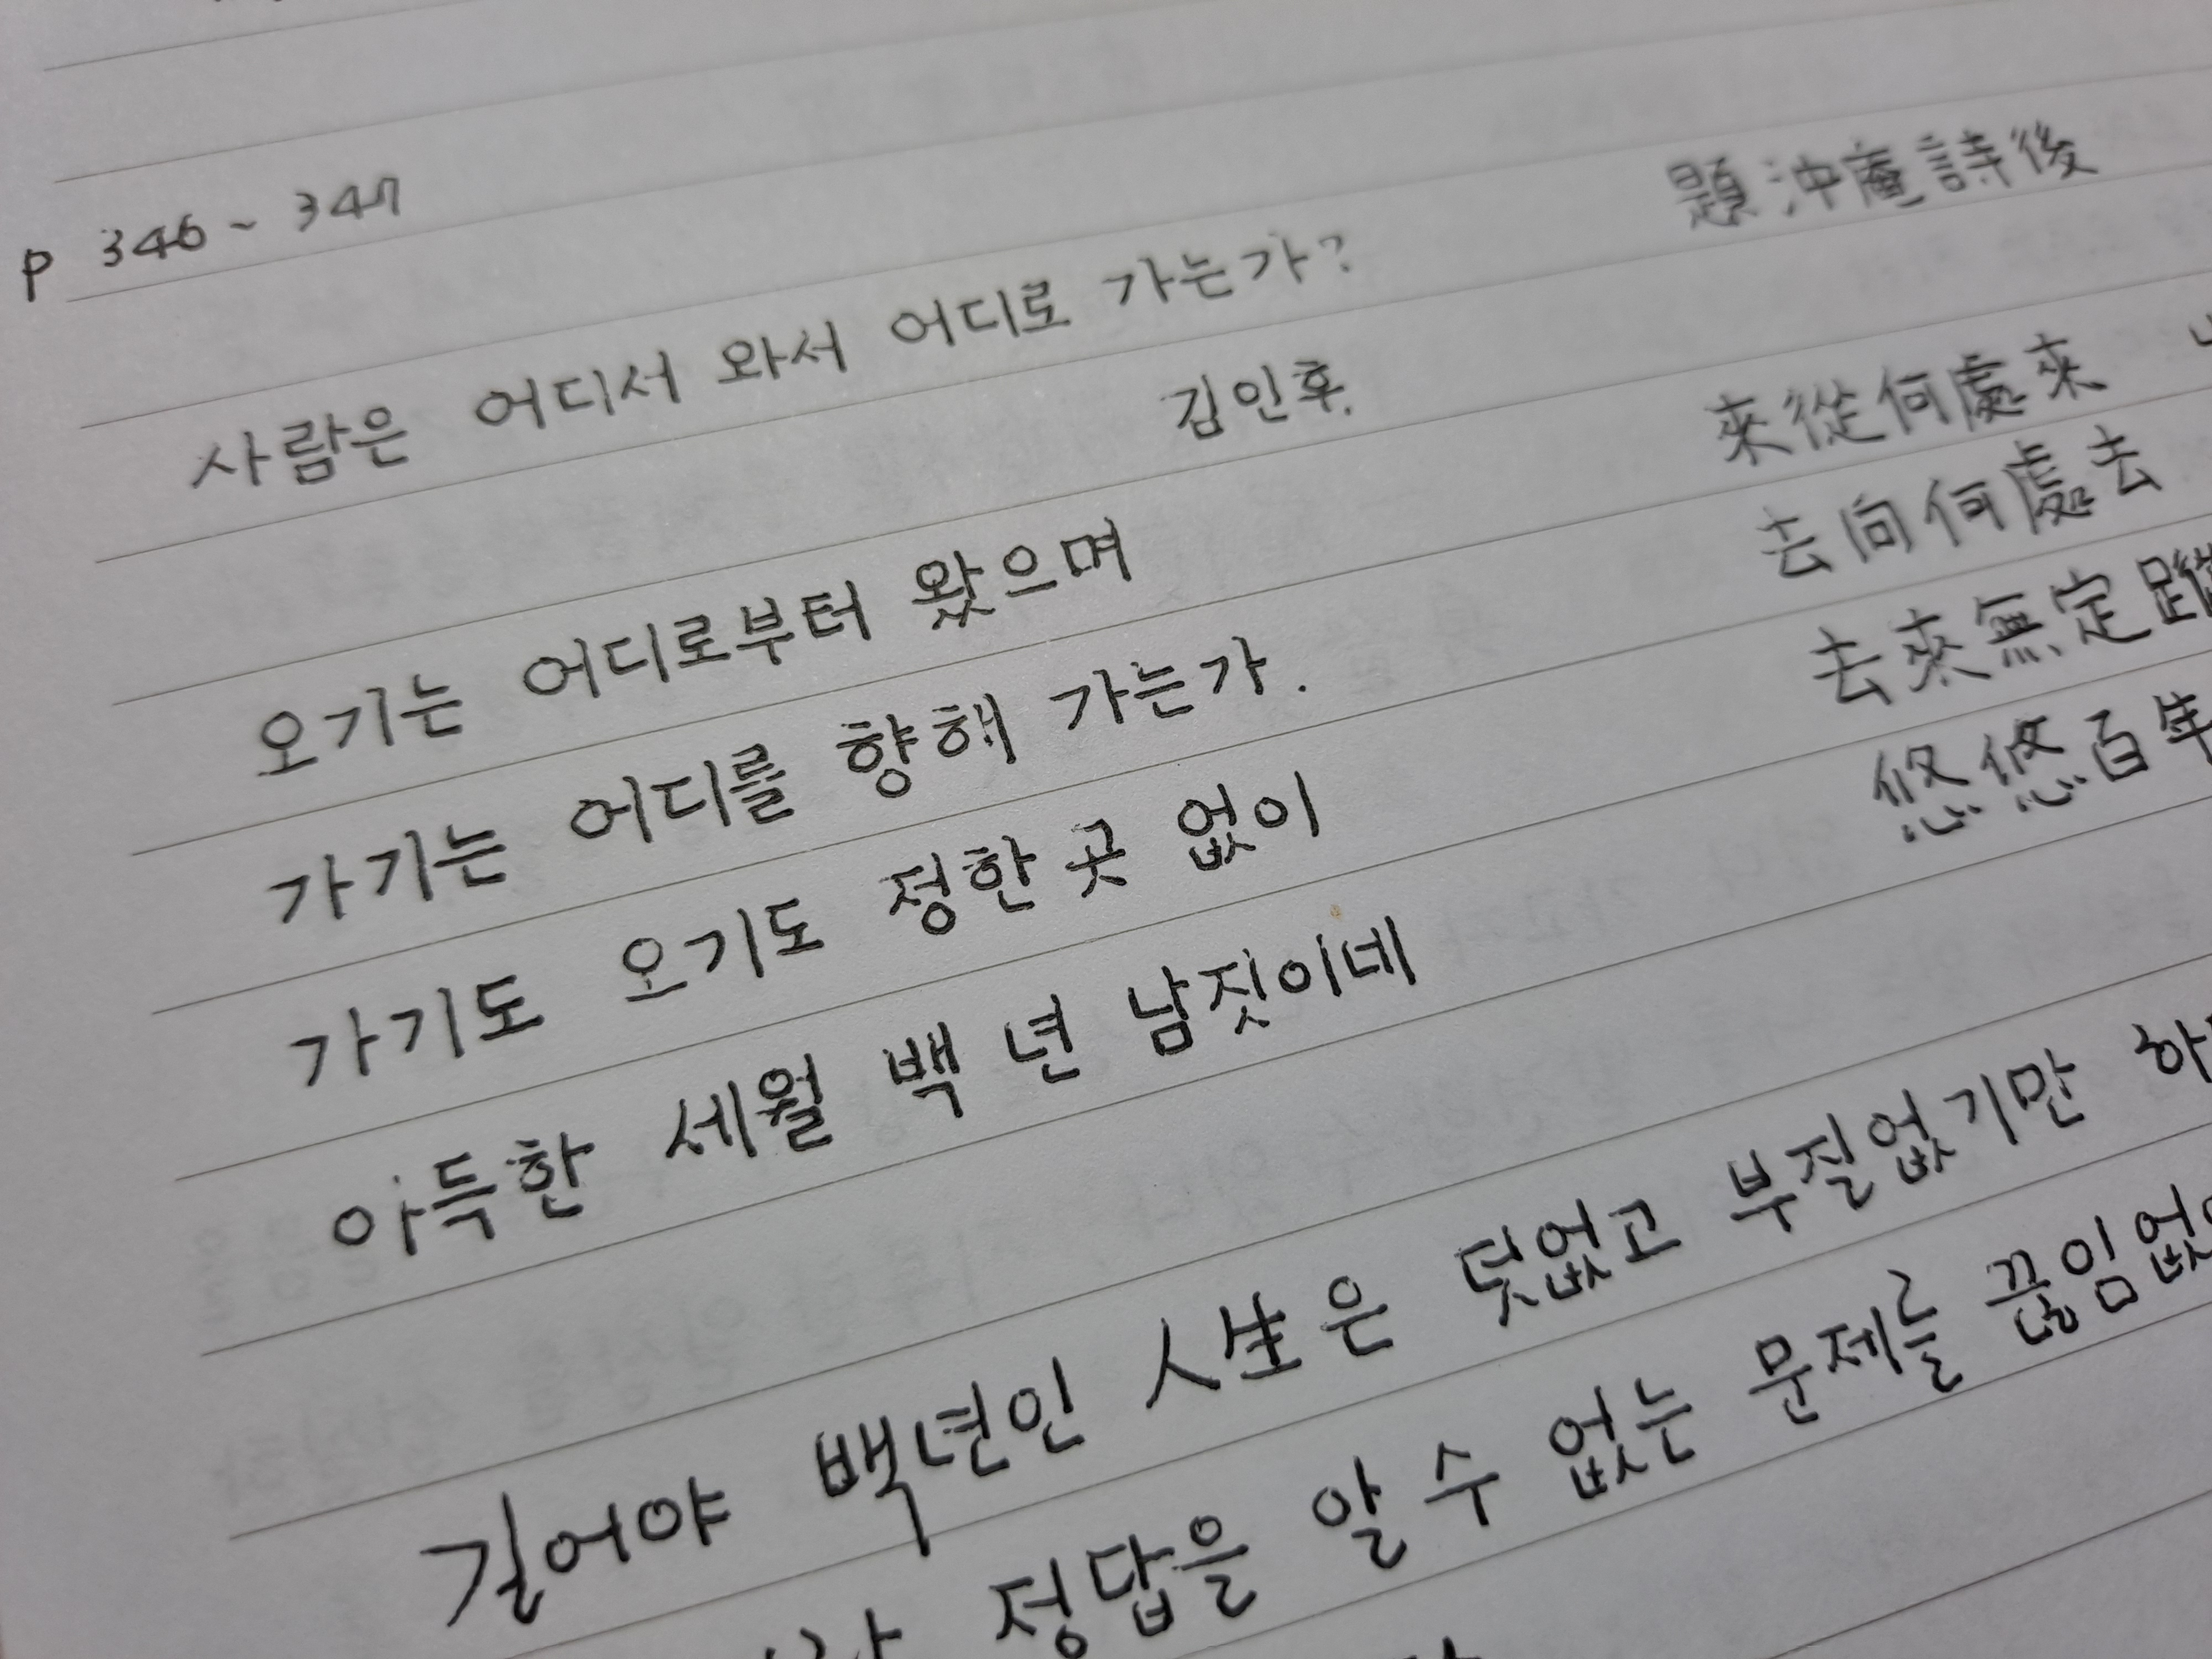 P 346~347
사람은 어디서 와서 어디로 가는가?
題沖庵詩後
김인후.
오기는 어디로부터 왔으며
來從何處來
가기는 어디를 향해 가는가.
去向何處去
가기도 오기도 정한 곳 없이
去來無定蹤
아득한 세월 백 년 남짓이네
悠悠百年
길어야 백년인 人生은 덧없고 부질없기만
정답을 알 수 없는 문제를